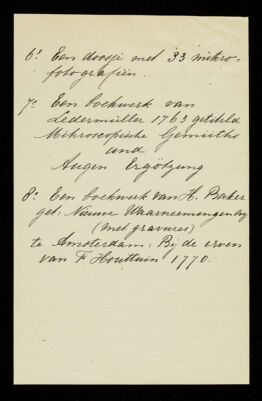 6º Een doosje met 33 mikro-
fotografiën.
7º Een boekwerk van
Ledermüller 1763 getiteld
Mikroscopische Gemüths
und
Augen Ergötzung
8º Een boekwerk van H. Baker
get: Nieuwe Waarneemingen enz
(met gravures)
te Amsterdam: Bij de erven
van F Houttuin 1770.